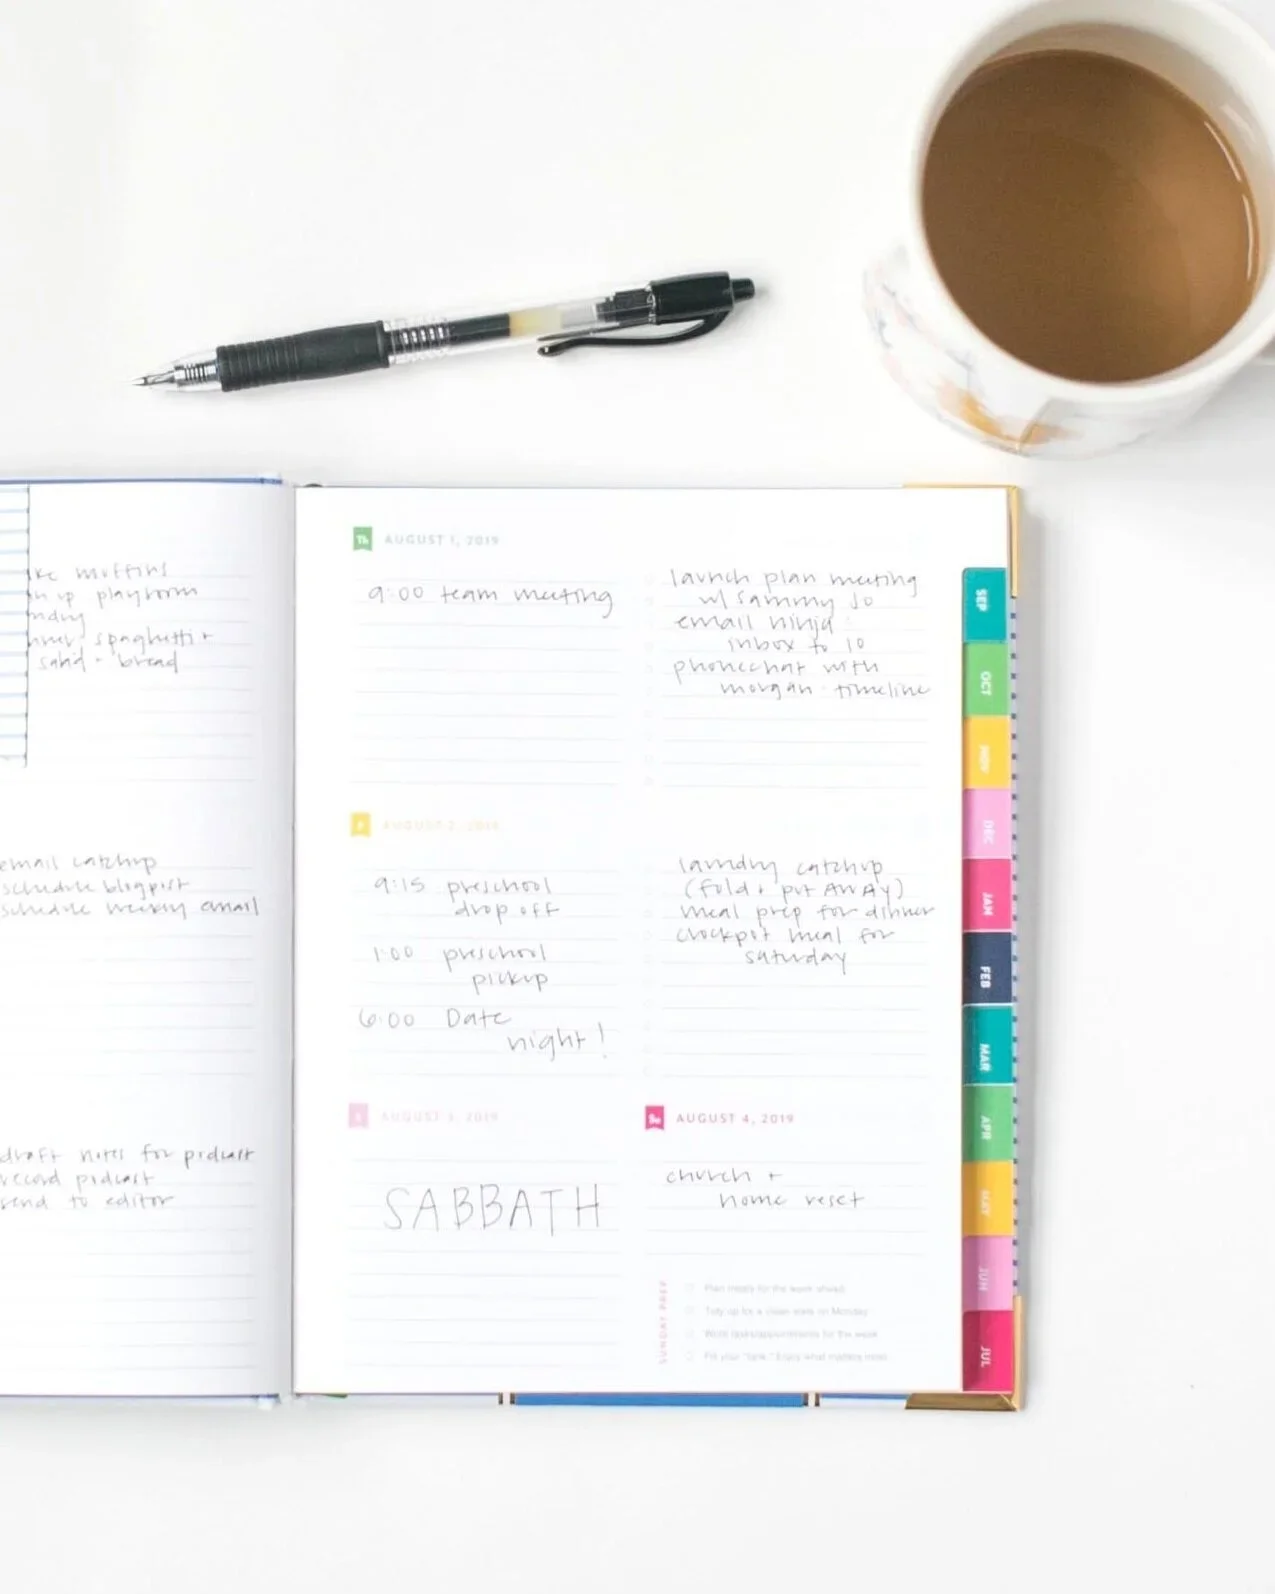 muffins
up playroom
spaghetti +
salad + bread
email catchup
schedule blogpost
schedule weekly email
draft notes for podcast
record podcast
send to editor
Th AUGUST 1, 2019
9:00 team meeting
launch plan meeting
w/ Sammy Jo
email ninja:
inbox to 10
phonechat with
morgan - timeline
AUGUST 2, 2019
9:15 preschool
drop off
1:00 preschool
pickup
6:00 Date
night!
laundry catchup
(fold + put AWAY)
meal prep for dinner
crockpot meal for
saturday
AUGUST 3, 2019
SABBATH
Su AUGUST 4, 2019
church +
home reset
SUNDAY PREP
Plan meals for the week ahead
Tidy up for a clean slate on Monday
Write tasks/appointments for the week
Fill your "tank." Enjoy what matters most.
SEP
OCT
NOV
DEC
JAN
FEB
MAR
APR
MAY
JUN
JUL